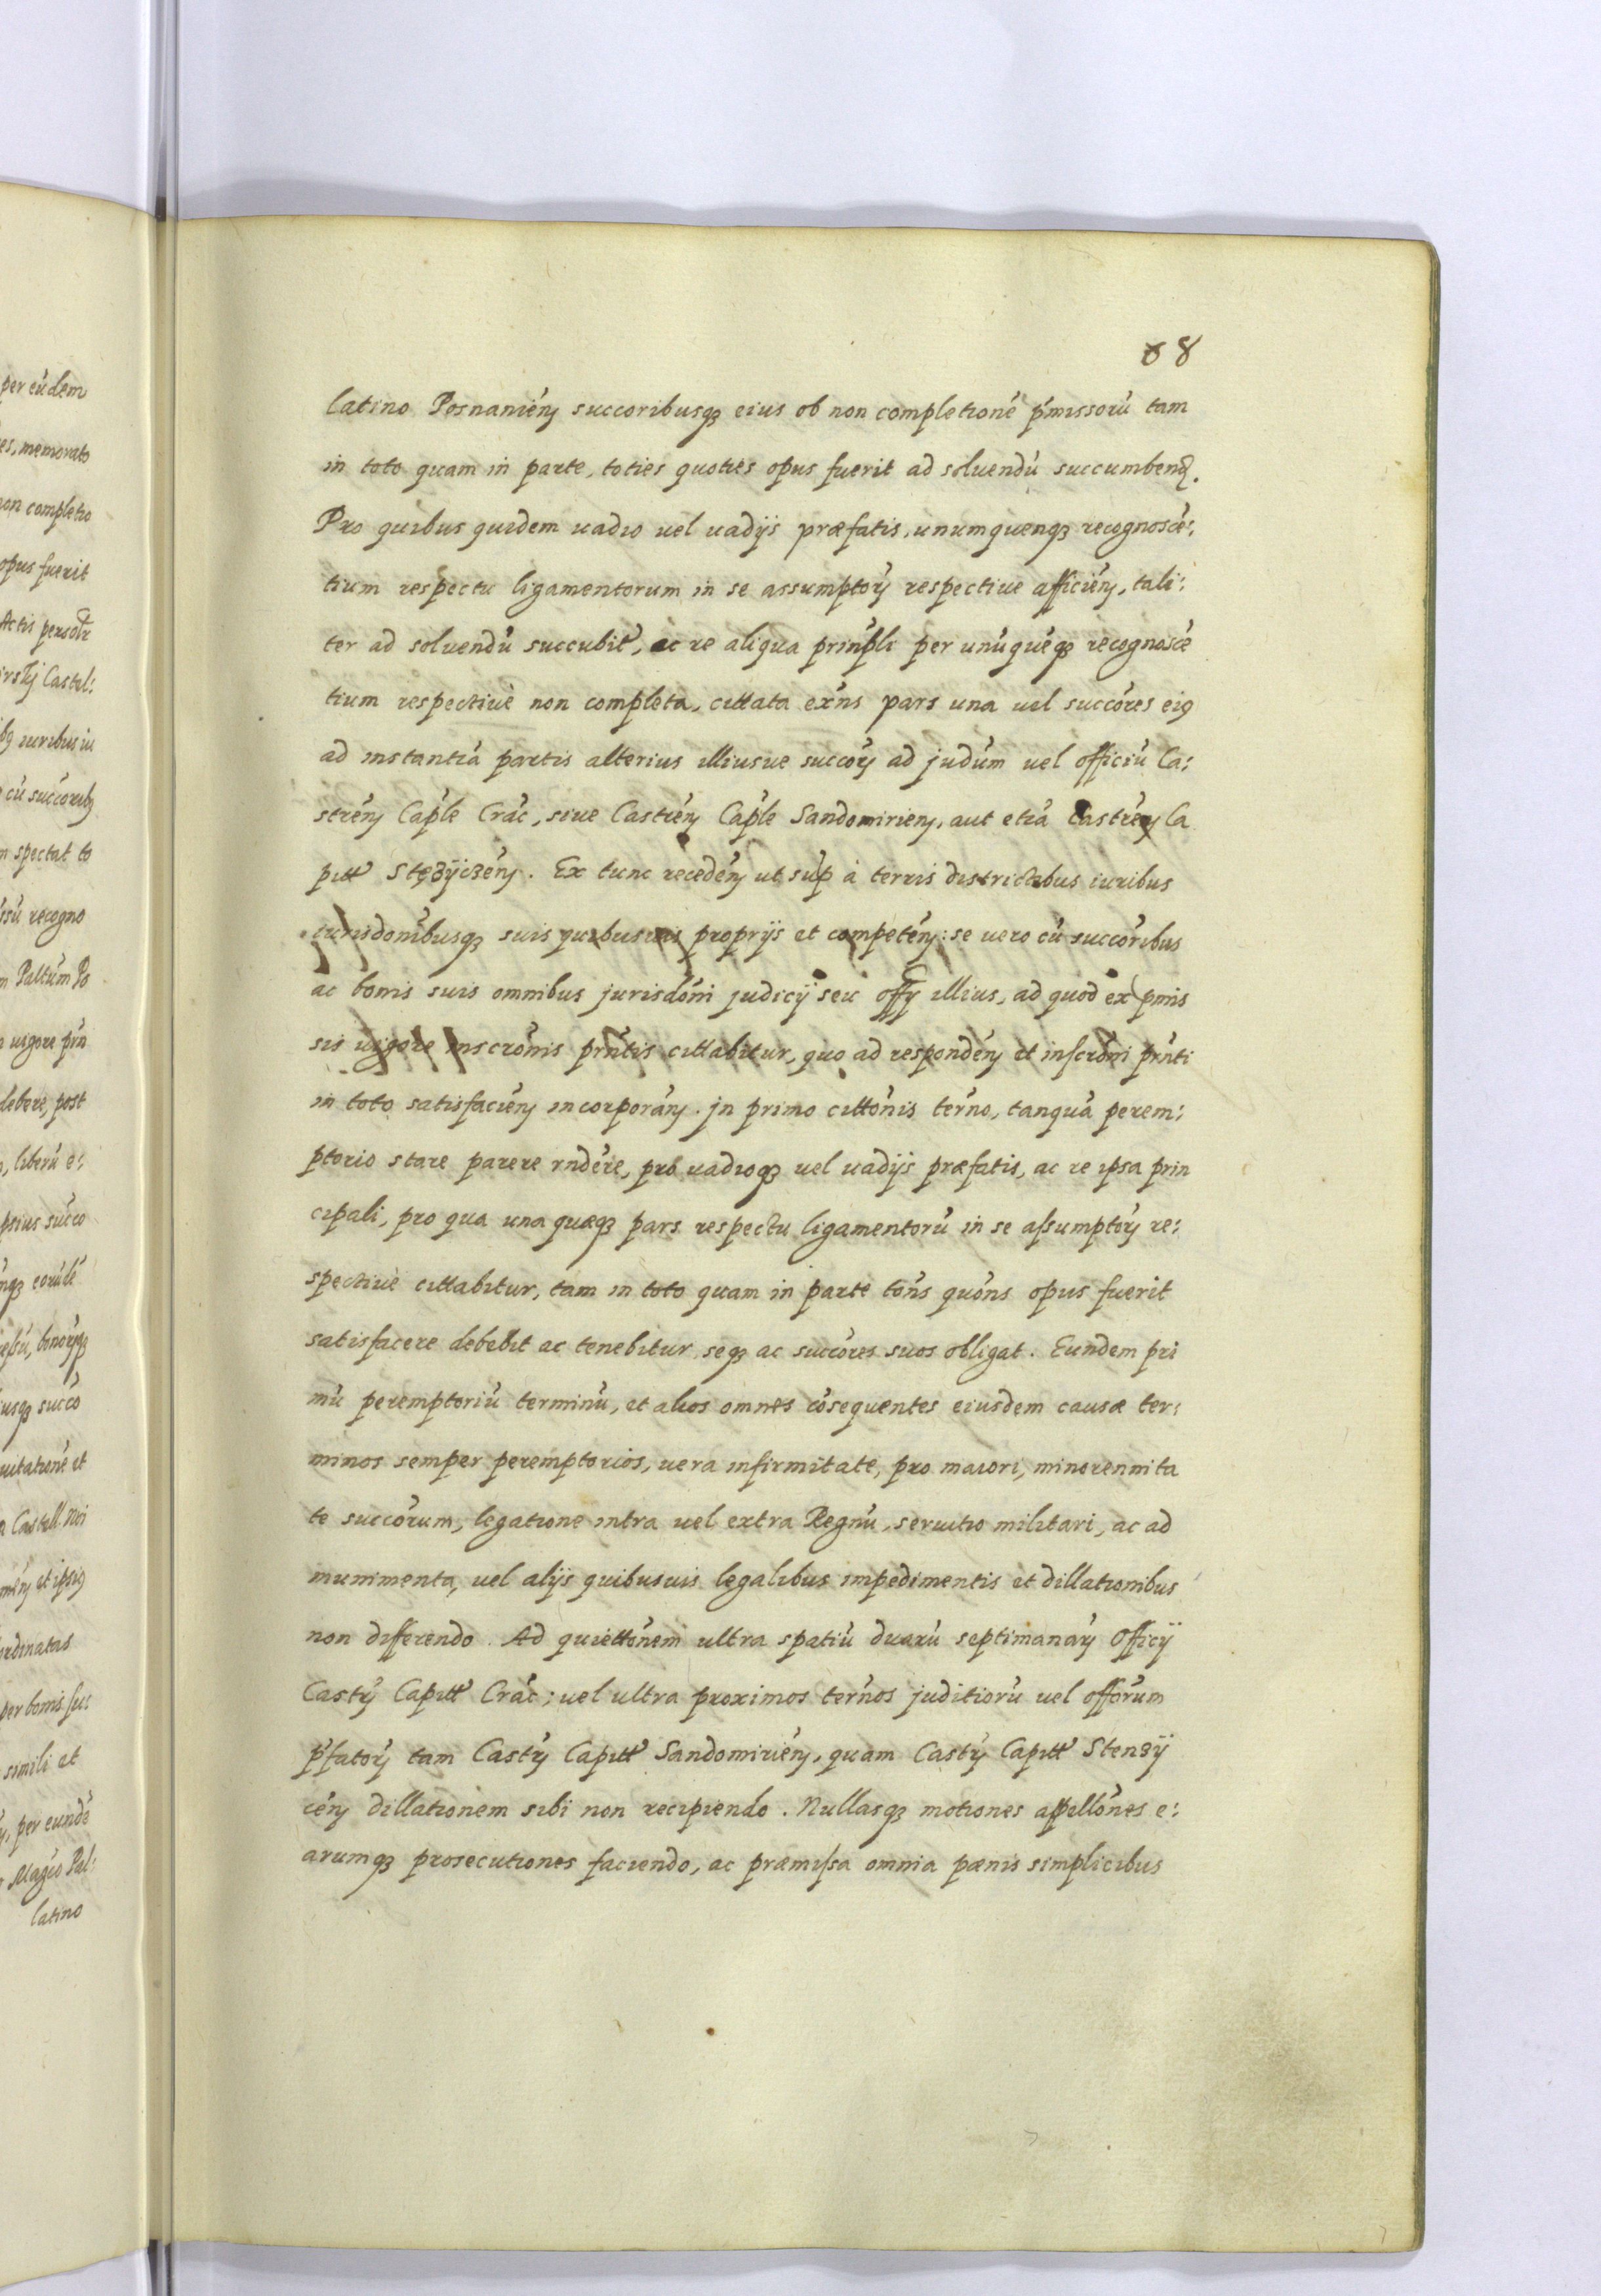 per eúdem
es, memorato
non completio
opus fuerit
Actis
Castel:
iuribus iu
cú succórib9
m spectat to
ssú recogno
m Paltúm Po
uigore prn
debere, post
, liberú e:
psius succo
ꝗ eorúdé
essú, bonorꝗ
iusqꝫ succo
uitationé et
Castell. Nri
et ipsi9
ordinatas
per bonis sui
simili et
, per eundé
Magco Pal:
latino
68
latino Posnanién succoribusqꝫ eius ob non completioné ṕmissorú tam
in toto quam in parte, toties quoties opus fuerit ad soluendú succumbend.
Pro quibus quidem uadio uel uadijs præfatis, unumquenqꝫ recognoscé:
tium respectu ligamentorum in se assumptorꝫ respectiue afficién, tali:
ter ad soluendú succubit, ac re aliqua prinpli per unúquéqꝫ recognoscé
tium respectiuè non completa, cittata exńs pars una uel succóres ei9
ad instantiá partis alterius illiusue succorꝫ ad judúm uel officiú Ca:
strén Caple Crác, siue Castrén Caple Sandomirien, aut etiá Castrén Ca
pitt Stęzÿczén. Ex tunc recedén ut sup à terris districtibus iuribus
iurisdonibusqꝫ suis quibusuis proprijs et competén: se uero cú succóribus
ac bonis suis omnibus jurisdóni judicij seu offy illius, ad quod ex pmis
sis uigore inscrónis prńtis cittabitur, quo ad respondén et inscróni prńti
in toto satisfacién incorporán. jn primo cittónis terńo, tanquá perem:
ptorio stare parere rndére, pro uadioqꝫ uel uadijs præfatis, ac re ipsa prin
cipali, pro qua una quæqꝫ pars respectu ligamentorú in se assumptorꝫ re:
spectiuè cittabitur, tam in toto quam in parte tońs quońs opus fuerit
satisfacere debebit ac tenebitur seqꝫ ac succóres suos obligat. Eundem pri
mú peremptoriú terminú, et alios omnes cósequentes eiusdem causæ ter:
minos semper peremptorios, uera infirmitate, pro maiori, minorennita
te succórum, legatione intra uel extra Regnú, seruitio militari, ac ad
munimenta, uel alijs quibusuis legalibus impedimentis et dillationibus
non differendo. Ad quiettónem ultra spatiú duarú septimanarꝫ Officij
Castrꝫ Capitt Crác; uel ultra proximos terńos juditiorú uel offórum
ṕfatorꝫ tam Castrꝫ Capitt Sandomirién, quam Castrꝫ Capitt Stenzÿ
cén dillationem sibi non recipiendo. Nullasqꝫ motiones appellónes e:
arumqꝫ prosecutiones faciendo, ac præmissa omnia pænis simplicibus